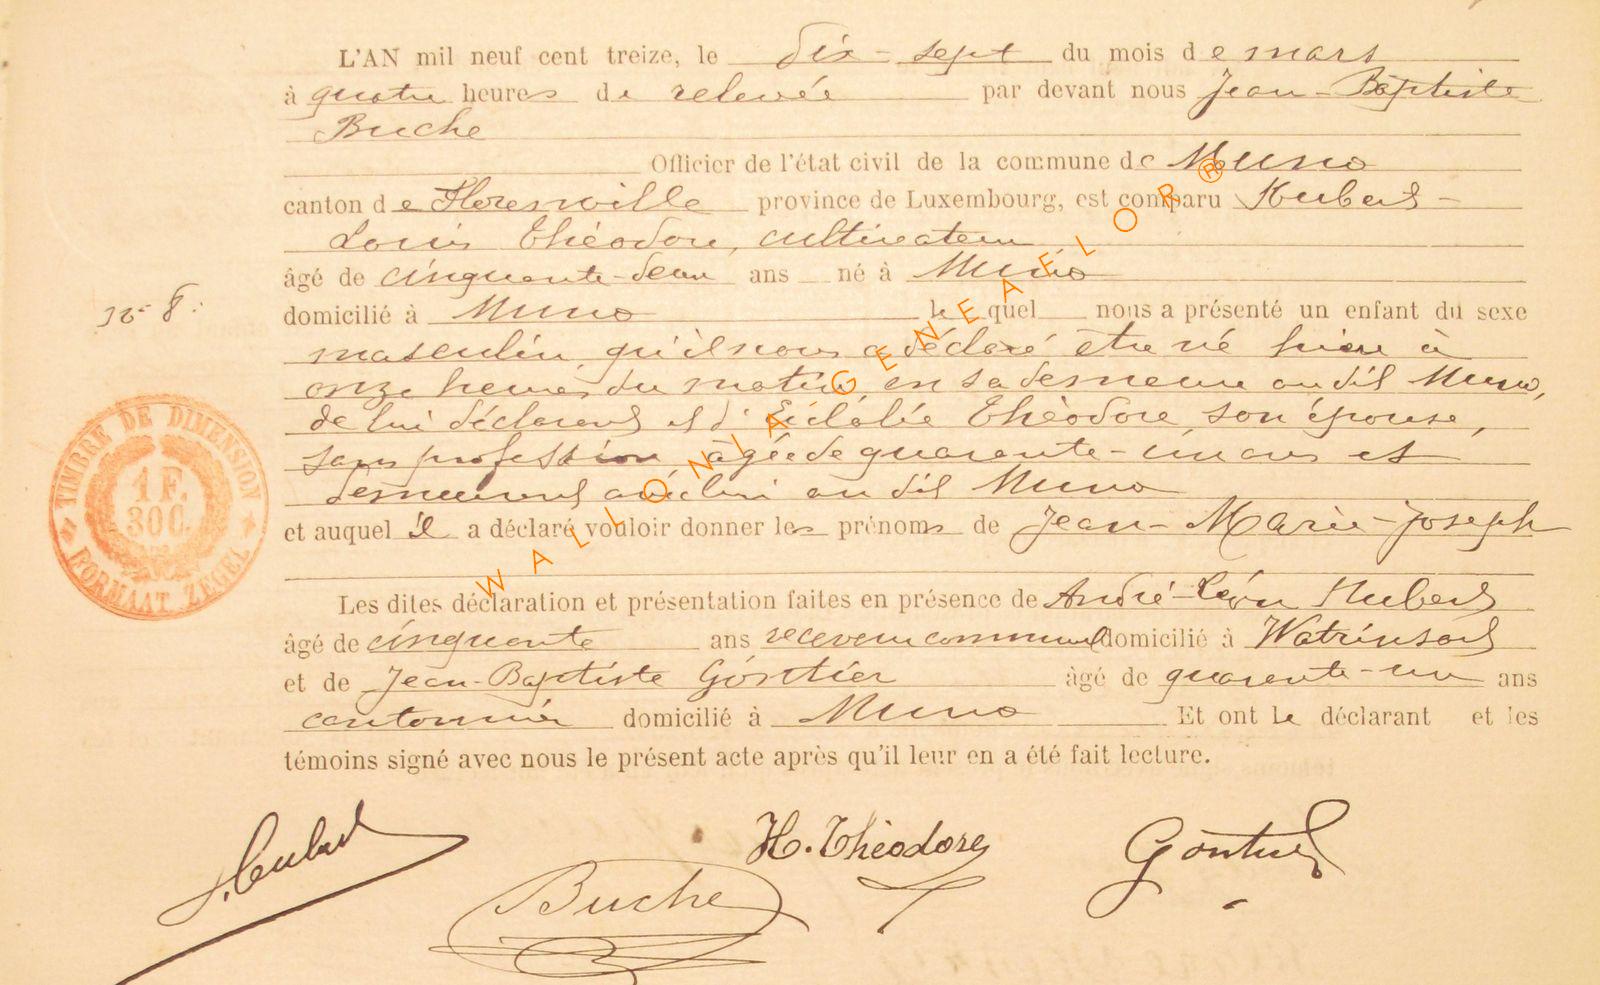 L'AN mil neuf cent treize, le dix-sept du mois de mars
à quatre heures de relevée par devant nous Jean-Baptiste
Buche
Officier de l'état civil de la commune de Muno
canton de Florenville province de Luxembourg, est comparu Hubert-
Louis Théodore, cultivateur
âgé de cinquante-deux ans né à Muno
N° 8.
domicilié à Muno lequel nous a présenté un enfant du sexe
masculin, qu'il nous a déclaré être né hier à
onze heures du matin, en sa demeure au dit Muno,
de lui déclarant et d'Eulalie Théodore, son épouse,
sans profession, âgée de quarante-un ans et
demeurant avec lui au dit Muno
et auquel il a déclaré vouloir donner les prénoms de Jean-Marie-Joseph
Les dites déclaration et présentation faites en présence de André-Léon Hubert
âgé de cinquante ans receveur communal domicilié à Watrinsart
et de Jean-Baptiste Gontier âgé de quarante-un ans
cantonnier domicilié à Muno Et ont le déclarant et les
témoins signé avec nous le présent acte après qu'il leur en a été fait lecture.
Hubert
H. Théodore
Gontier
Buche
TIMBRE DE DIMENSION
1 F.
30 C.
FORMAAT ZEGEL
WALLONIA GENEAELOR ®